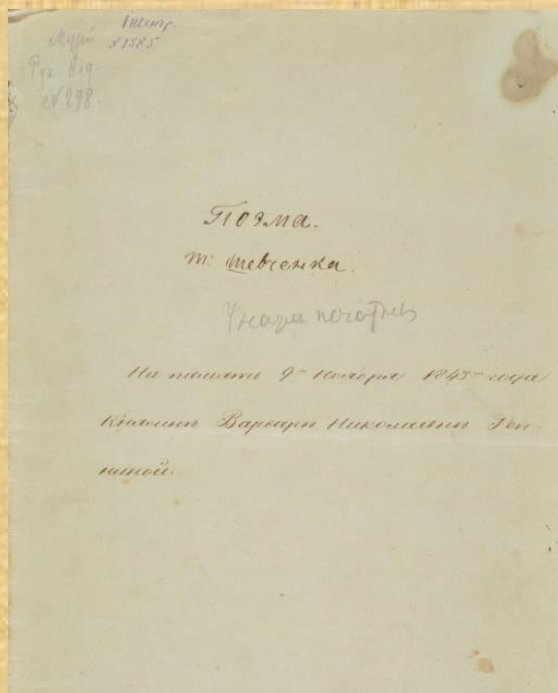 Інвент.
Музей №1585
Рук. Від.
№ 298.
Поэма.
Т. Шевченка.
На память 9го Ноября 1843го года
Княжны Варвары Николаевны Реп-
ниной